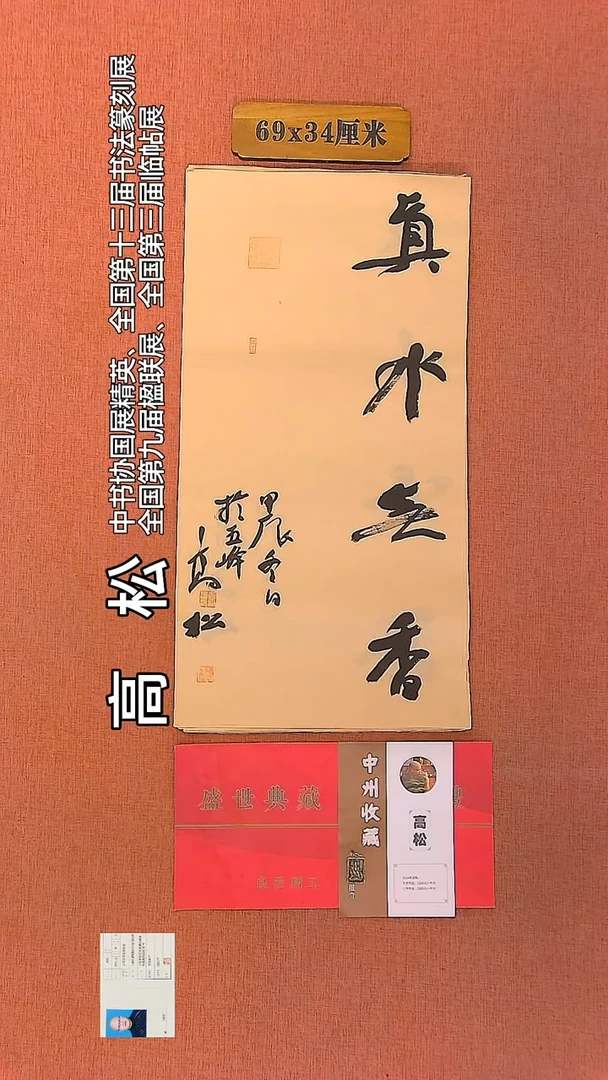 69x34厘米
真水无香
甲辰冬日
於五峰
高松
高 松
中书协国展精英、全国第十三届书法篆刻展
全国第九届楹联展、全国第三届临帖展
盛世典藏
中州收藏
高松